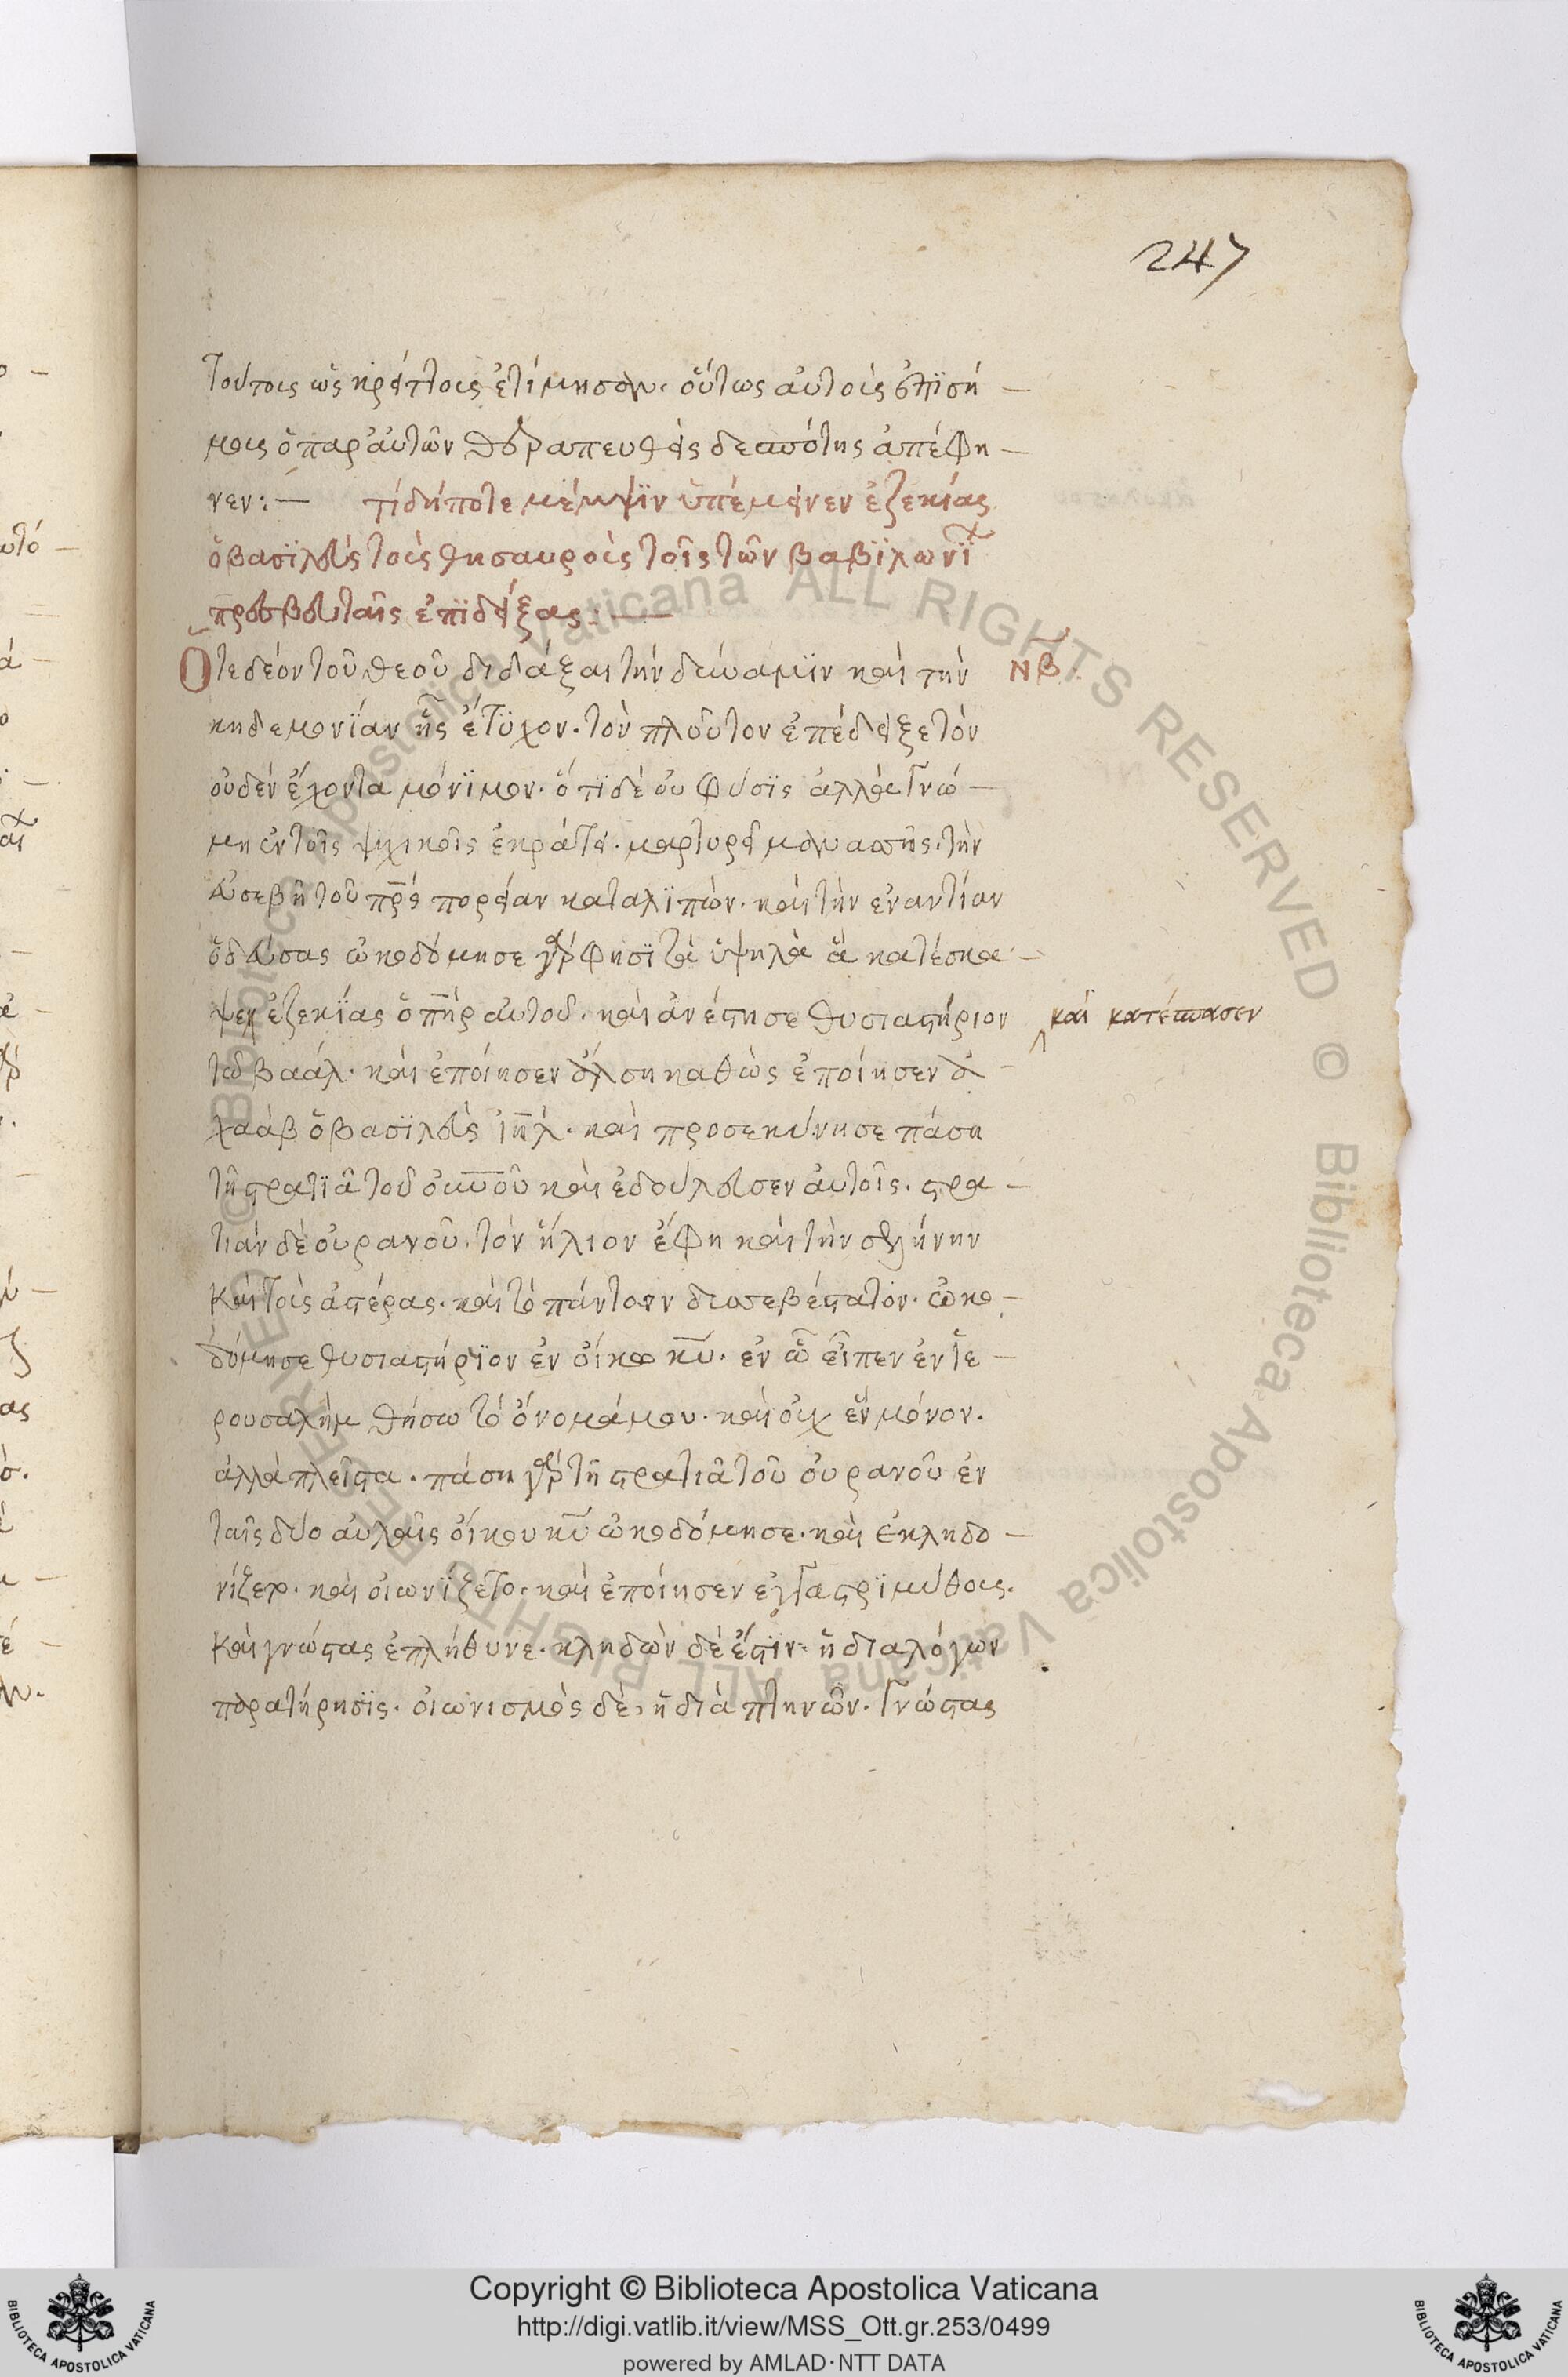 247
τούτοις ὡς κρείττοις ἐτίμησαν· οὕτως αὐτοὺς ἐπϊσή –
μους ὁ παρ' αὐτῶν θεραπευθεὶς δεσπότης ἀπέφη –
νεν: – τί δήποτε μέμψϊν ὑπέμεινεν ἐζεκίας
ὁ βασϊλεὺς τοὺς θησαυροὺς τοῖς τῶν βαβϊλωνΐ
πρεσβευταῖς ἐπϊδείξας: –
Ὅτε δέον τοῦ θεοῦ διδάξαι τὴν δύναμϊν καὶ τὴν
ΝΒ
κηδεμονΐαν ἧς ἔτϋχον· τὸν πλοῦτον ἐπέδειξε τὸν
οὐδὲν ἔχοντα μόνϊμον· ὅτϊ δὲ οὐ φύσϊς ἀλλὰ γνώ –
μη ἐν τοῖς ψυχικοῖς ἐκράτει· μαρτυρεῖ μανασσῆς· τὴν
εὐσεβῆ τοῦ πρς πορείαν καταλϊπὼν· καὶ τὴν ἐναντίαν
ὁδεύσας ὠκοδόμησε γὰρ φησϊ τὰ ὑψηλὰ ἃ κατέσκα –
ψεν ἐζεκΐας ὁ πηρ αὐτοῦ· καὶ ἀνέστησε θυσιαστήριον
καὶ κατέσπασεν
τῶ βαάλ· καὶ ἐποίησεν ἄλση καθὼς ἐποίησεν ἀ –
χαὰβ ὁ βασϊλεὺς ιηλ· καὶ προσεκύνησε πάση
τῆ στρατϊᾶ τοῦ οὐνοῦ καὶ ἐδούλευσεν αὐτοῖς· στρα –
τιὰν δὲ οὐρανοῦ· τὸν ἥλιον ἔφη καὶ τὴν σελήνην
καὶ τοὺς ἀστέρας· καὶ τὸ πάντων δυσσεβέστατον· ὠκο –
δόμησε θυσιαστήρϊον ἐν οἴκω κυ· ἐν ὧ εἶπεν ἐν ἱε –
ρουσαλὴμ θήσω τὸ ὄνομά μου· καὶ οὐχ ἓν μόνον·
ἀλλὰ πλεῖστα· πάση γὰρ τῆ στρατιᾶ τοῦ οὐρανοῦ ἐν
ταῖς δύο αὐλαῖς οἴκου κυ ὠκοδόμησε· καὶ ἐκληδο –
νίζετο· καὶ οἰωνΐζετο· καὶ ἐποίησεν ἐγγαστρϊμύθους·
καὶ γνώστας ἐπλήθυνε· κληδὼν δέ ἐστϊν· ἡ διαλόγων
παρατήρησϊς· οἰωνισμὸς δὲ, ἡ διὰ πτηνῶν· γνώστας
Copyright © Biblioteca Apostolica Vaticana
http://digi.vatlib.it/view/MSS_Ott.gr.253/0499
powered by AMLAD·NTT DATA